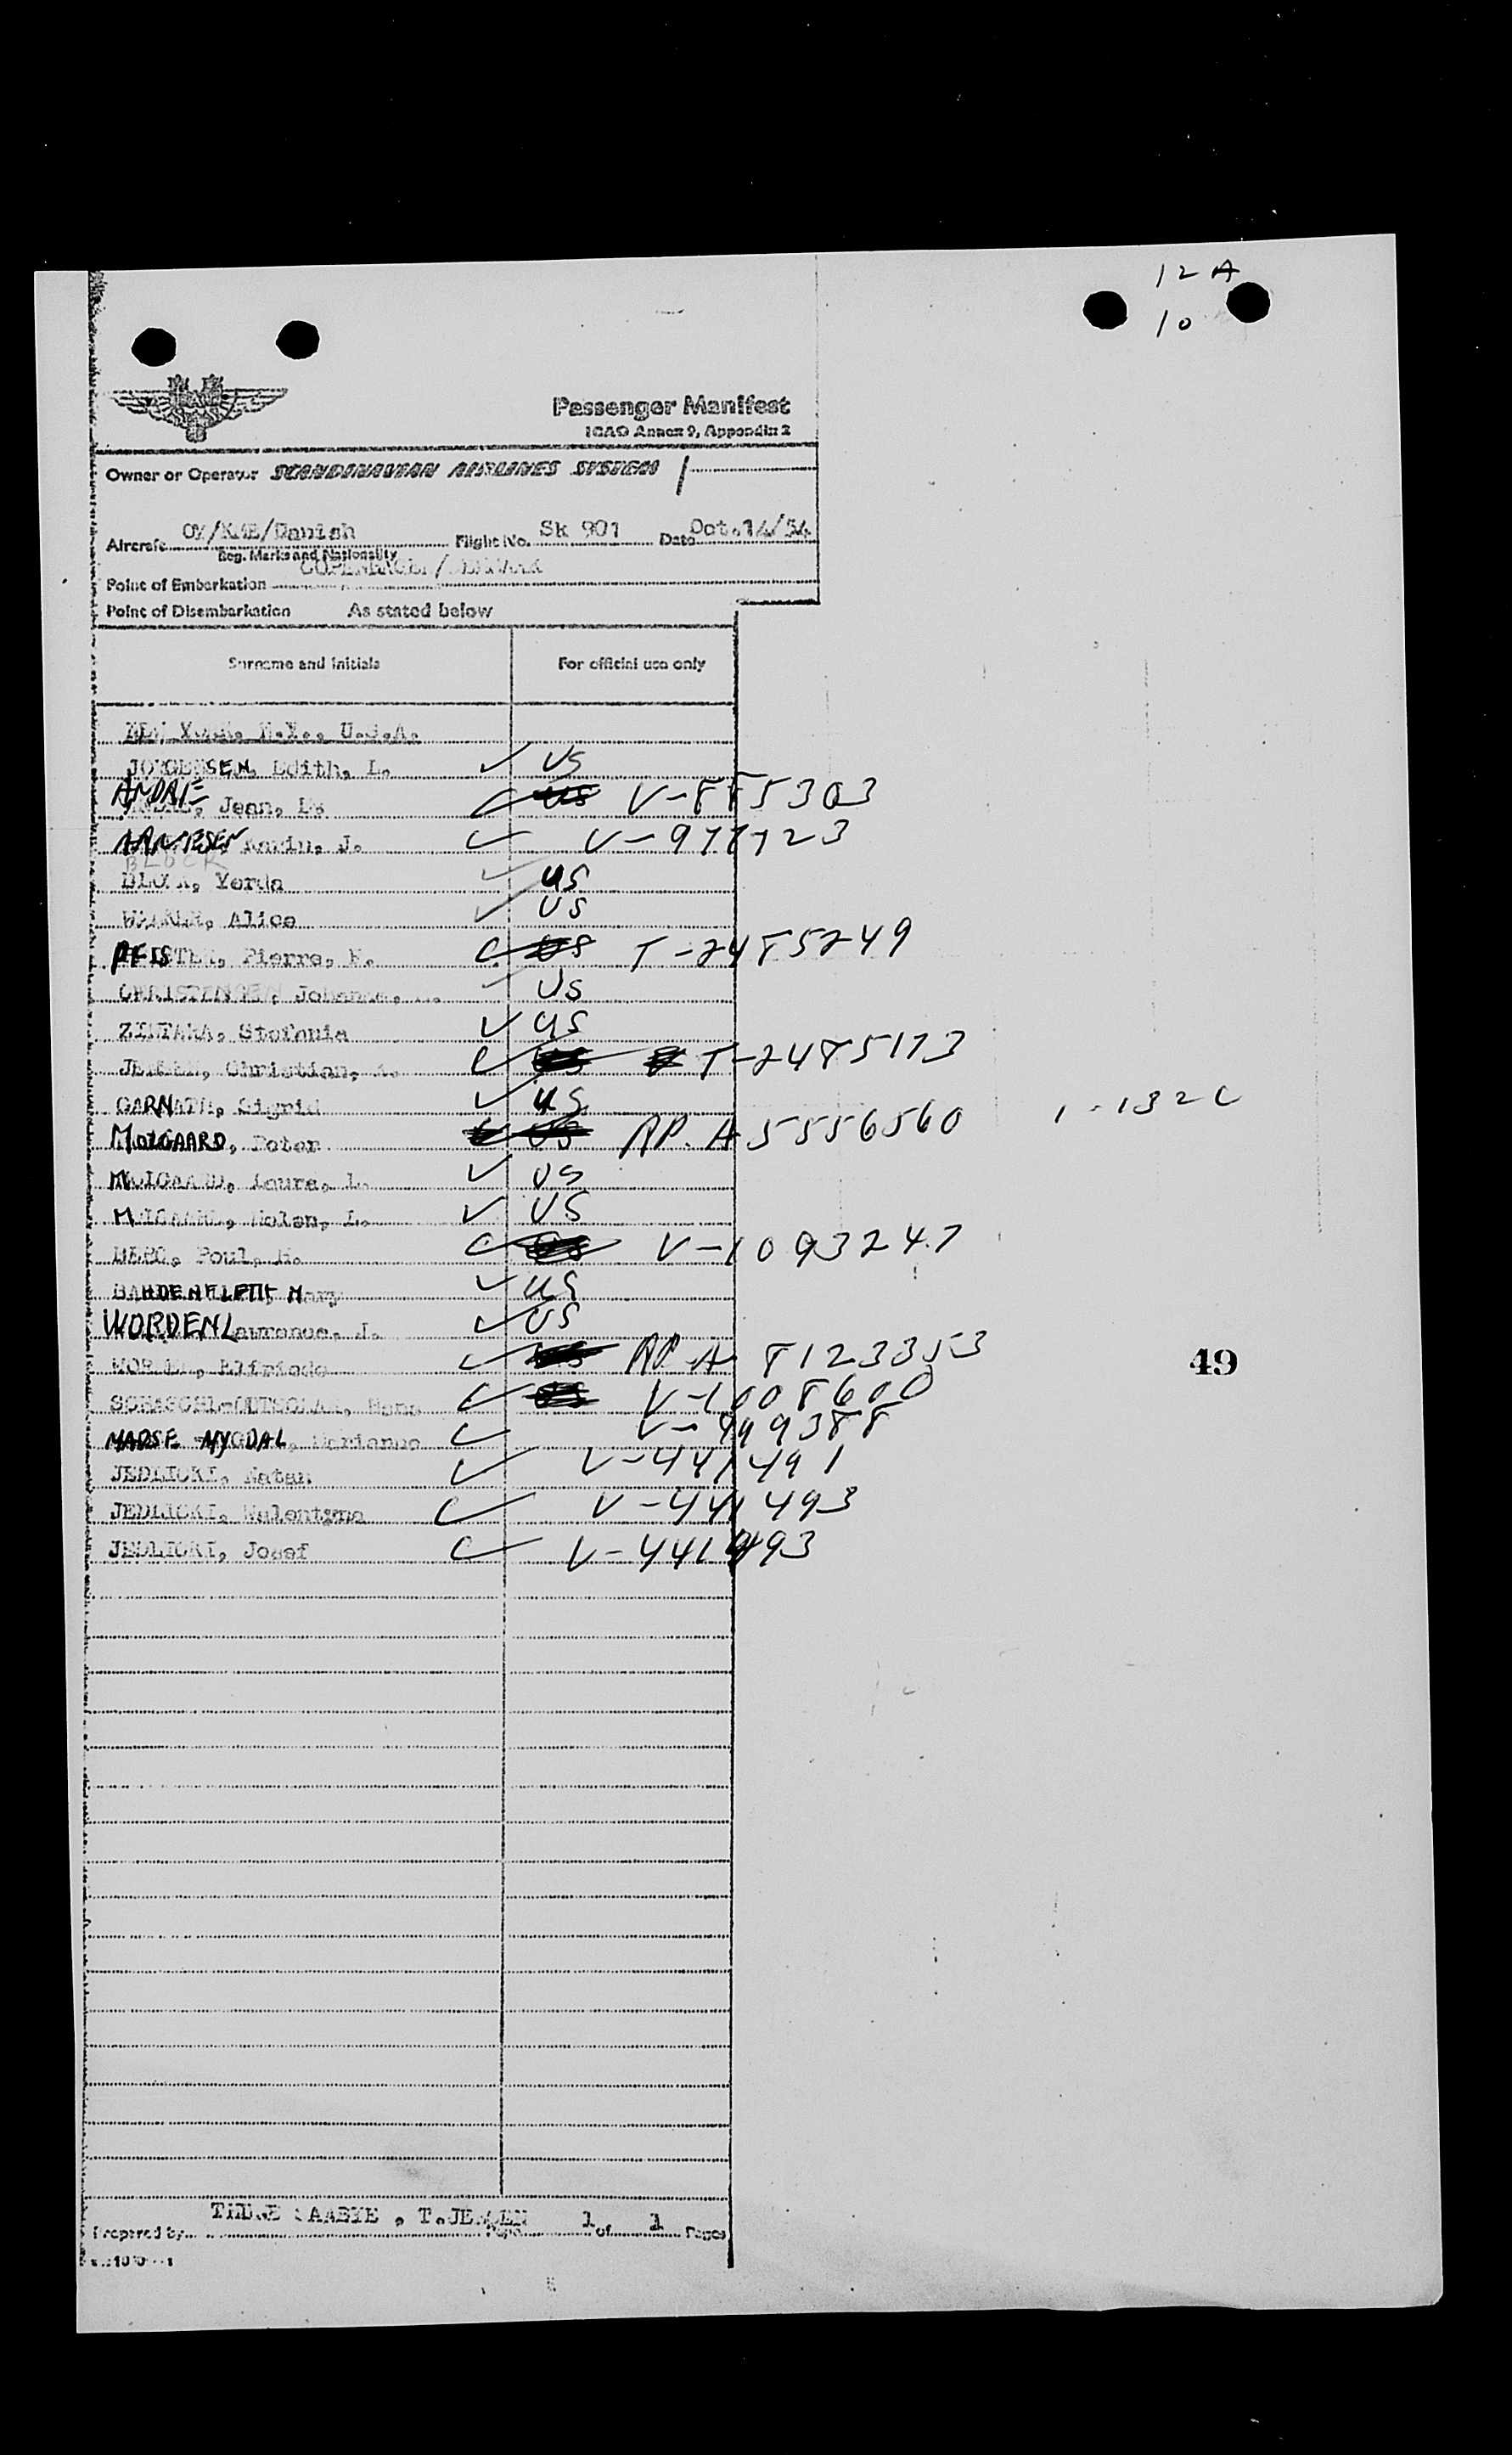 12 A
10
Passenger Manifest
ICAO Annex 9, Appendix 2
Owner or Operator SCANDINAVIAN AIRLINES SYSTEM
Aircraft OY/KME/Danish Flight No. Sk 901 Date Oct.14/54
Reg. Marks and Nationality
Point of Embarkation COPENHAGEN/DENMARK
Point of Disembarkation As stated below
Surname and initials For official use only
NEW YORK, N.Y., U.S.A.
JORGENSEN, Edith, L. US
ANDRE, Jean, US V-885303
J. V-977723
BLOCK
Yerda US
Alice US
Pierre, US T-2485249
CHRISTENSEN, US
ZINTARA, Stefania US
Christian, T-2485173
GARNATH, Sigrid US
MOLGAARD, Peter US RP. A 5556560 1-132C
MOLGAARD, Laura, L. US
MOLGAARD, Helen, L. US
Poul, V-1093247
Mary US
WORDEN Lawrence, J. US
WORDEN, Elfriede US RP. A 8123353
49
Hans US V-1008600
MADSE NYGDAL, Marianne V-999388
JEDLICKI, Natan V-441491
JEDLICKI, Walentyna V-441493
JEDLICKI, Josef V-441493
Prepared by T.JENSEN Page 1 of 1 Pages